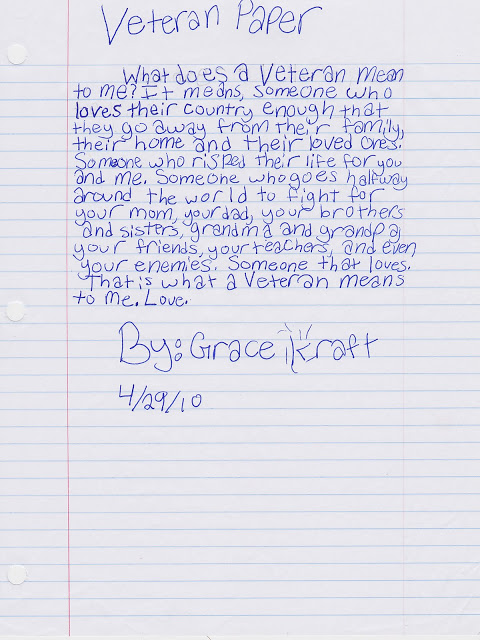 Veteran Paper
What does a Veteran mean
to me? It means, someone who
loves their country enough that
they go away from their family,
their home and their loved ones.
Someone who risked their life for you
and me. Someone who goes halfway
around the world to fight for
your mom, your dad, your brothers
and sisters, grandma and grandpa,
your friends, your teachers, and even
your enemies. Someone that loves.
That is what a Veteran means
to me. Love.
By: Grace Kraft
4/29/10